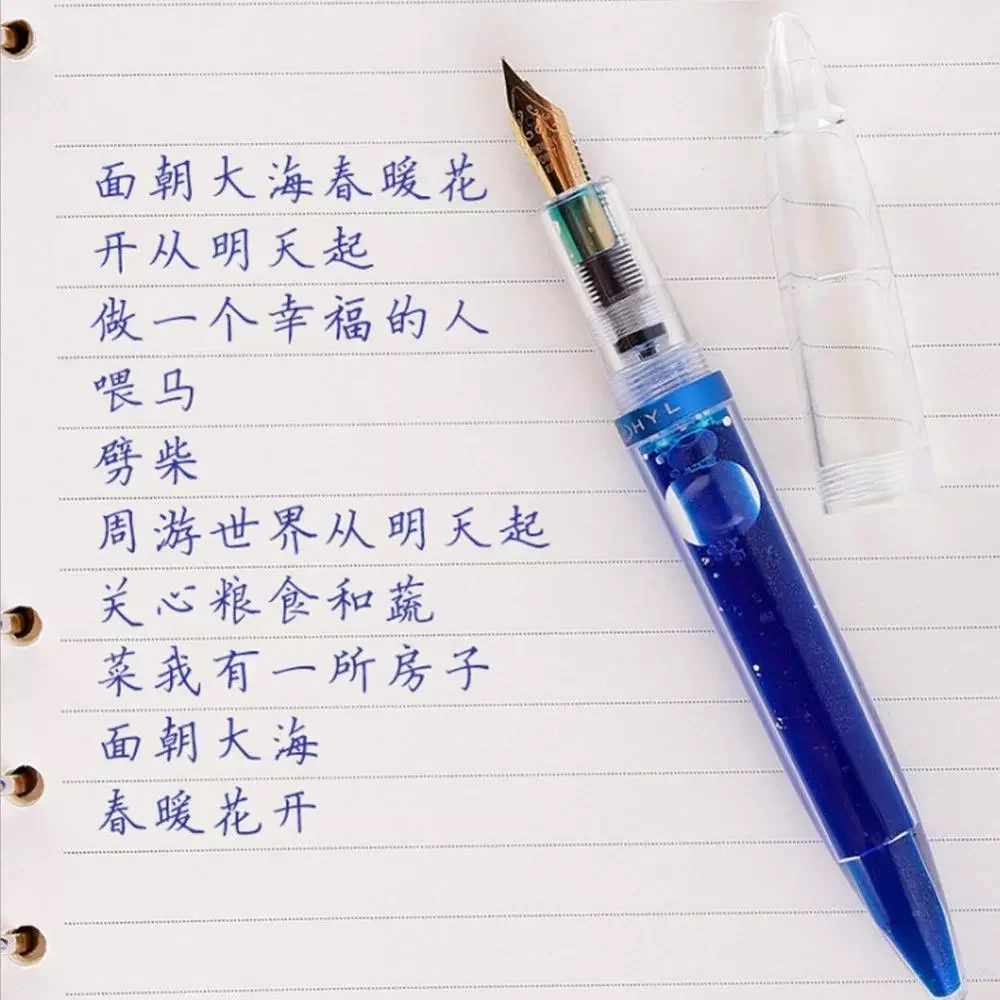 面朝大海春暖花
开从明天起
做一个幸福的人
喂马
劈柴
周游世界从明天起
关心粮食和蔬
菜我有一所房子
面朝大海
春暖花开
HYL